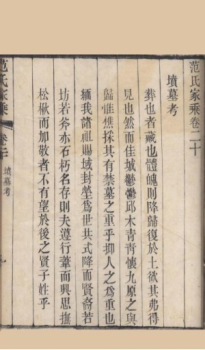 范氏家乘卷二十
墳墓考
葬也者藏也體魄則降歸復於土欲其弗得
見也然而佳城鬱鬱邱木青青懷九原之與
歸惟樵採其有禁墓之重乎抑人之為重也
緬我諸祖賜域封塋為世共式降而賢裔若
坊若斧亦石朽名存則夫遵行葦而興思撫
松楸而加敬者不有望於後之賢子姓乎
范氏家乘
墳墓考